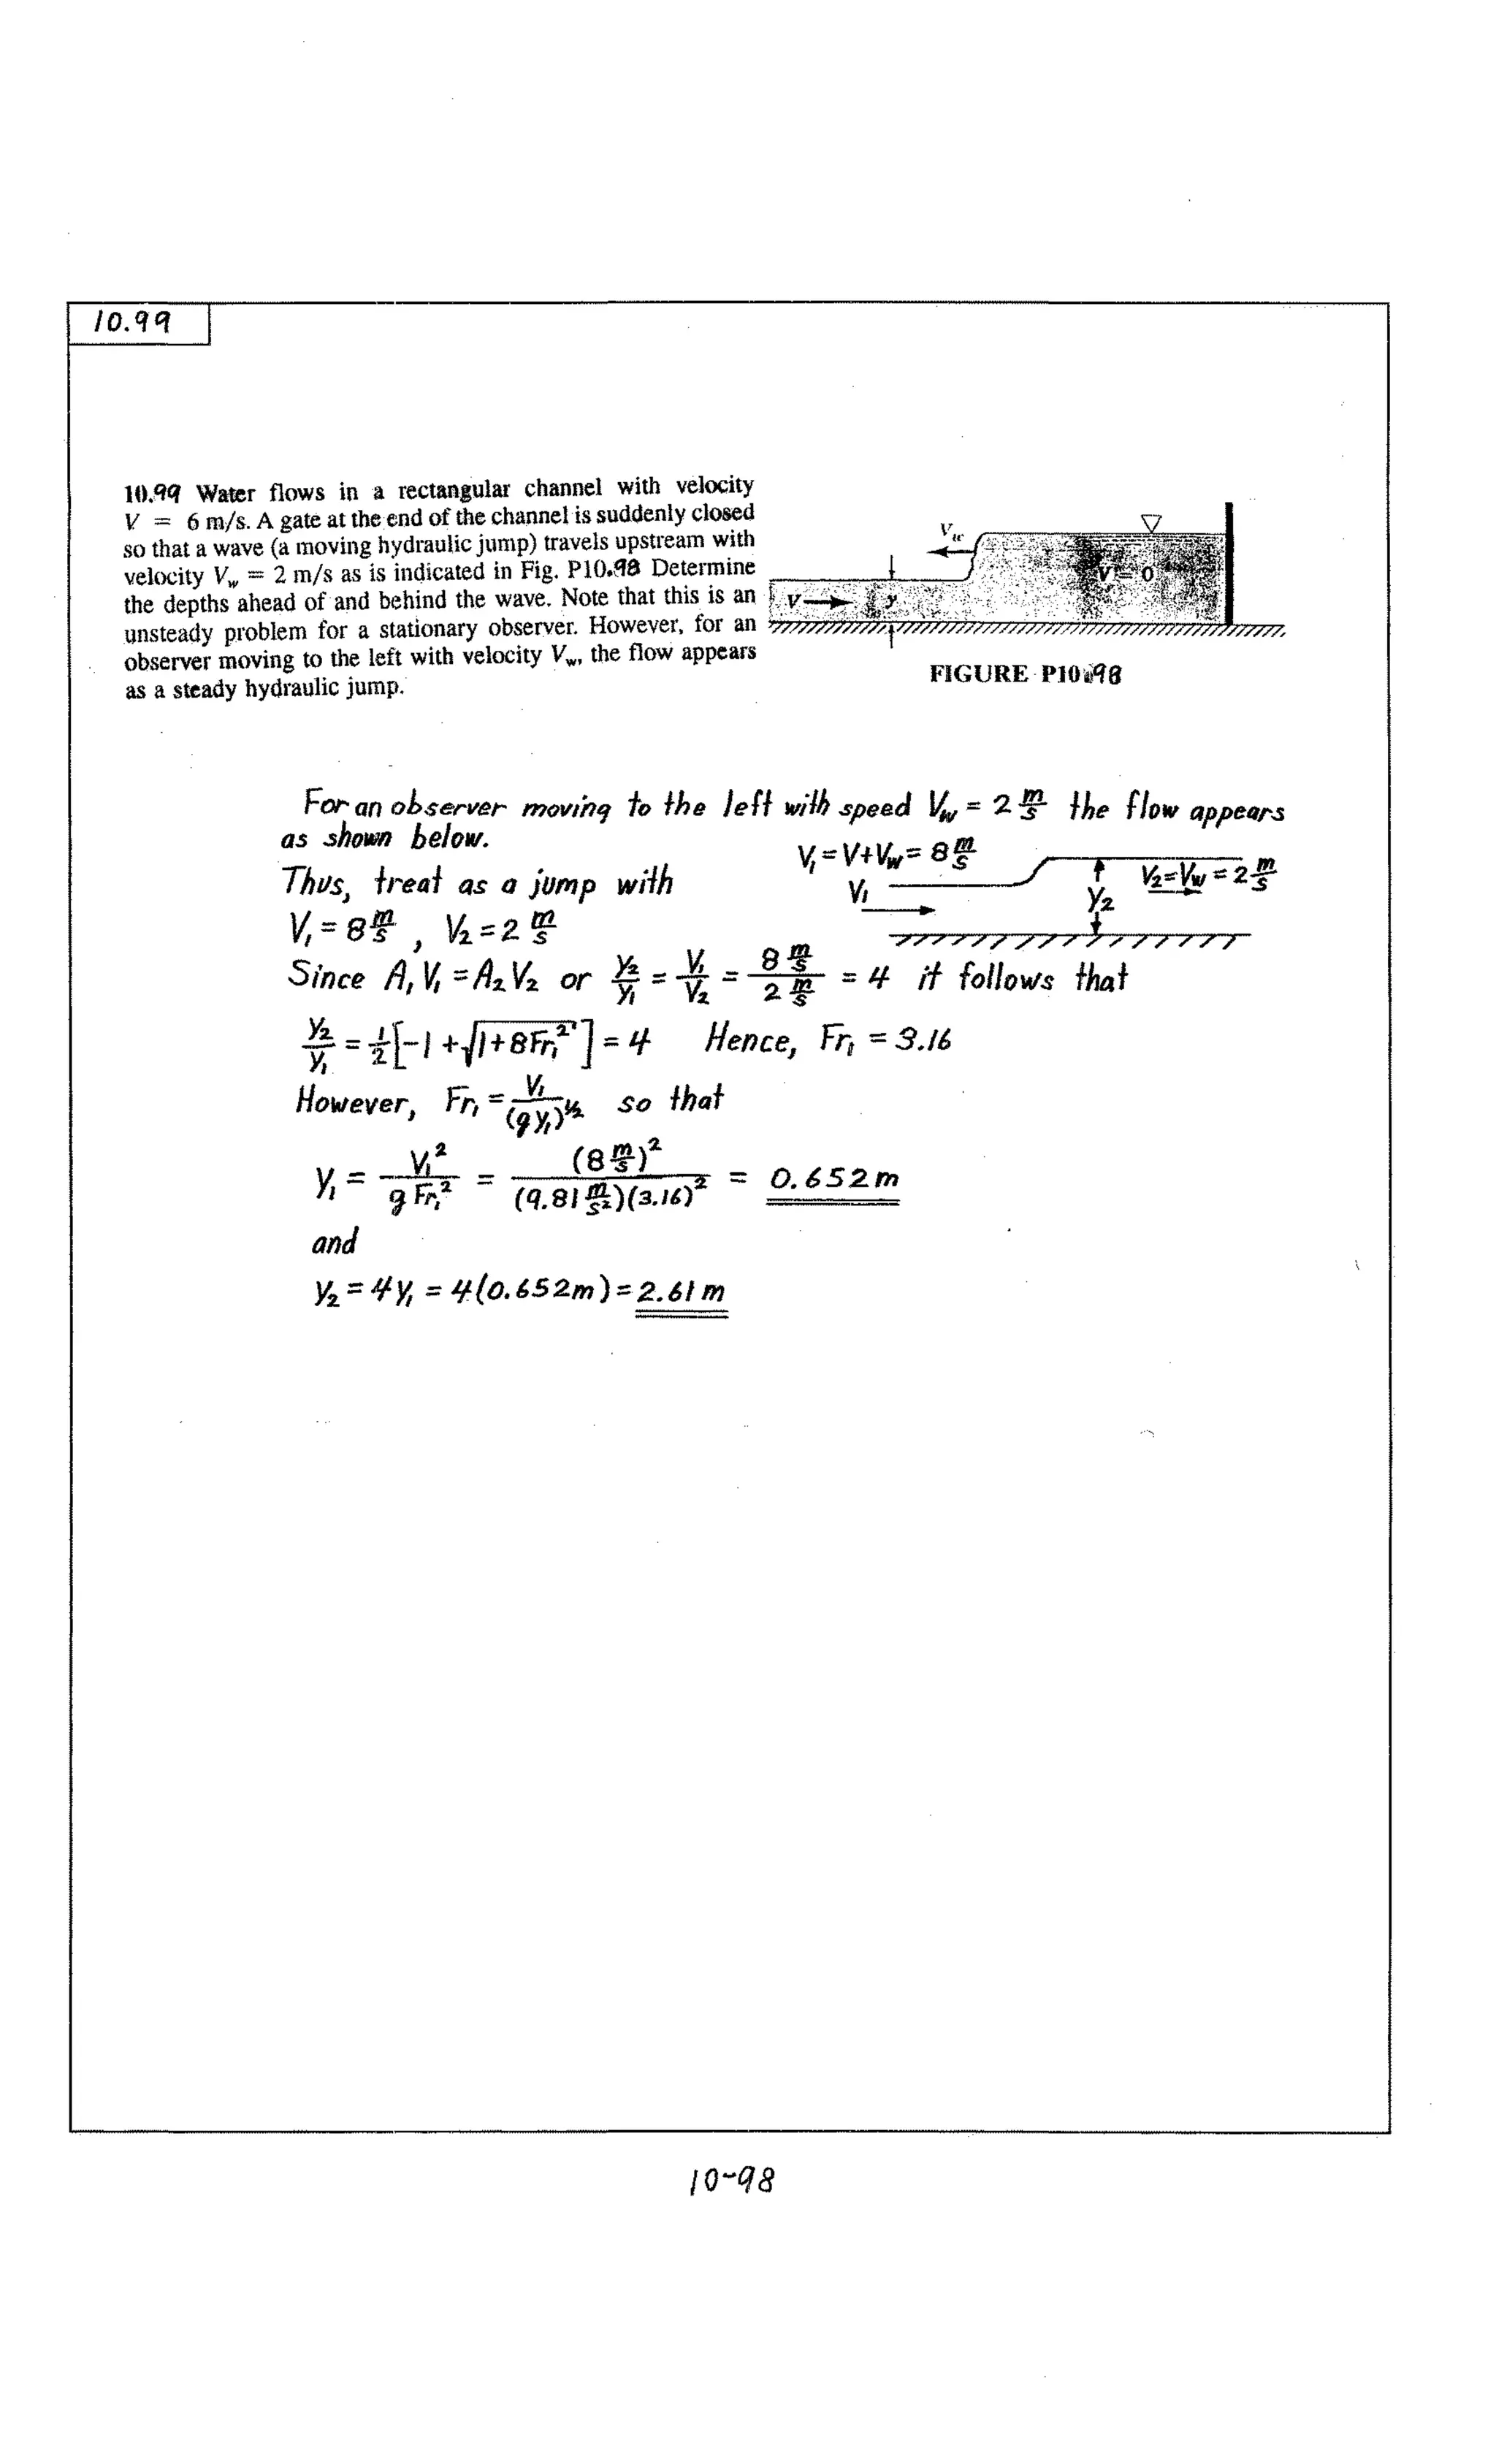 10.99
10.99 Water flows in a rectangular channel with velocity
V = 6 m/s. A gate at the end of the channel is suddenly closed
so that a wave (a moving hydraulic jump) travels upstream with
velocity V_w = 2 m/s as is indicated in Fig. P10.98 Determine
the depths ahead of and behind the wave. Note that this is an
unsteady problem for a stationary observer. However, for an
observer moving to the left with velocity V_w, the flow appears
as a steady hydraulic jump.
V_w
V = 0
V
y
FIGURE P10.98
For an observer moving to the left with speed V_w = 2 m/s the flow appears
as shown below.
V₁ = V + V_w = 8 m/s
V₂ = V_w = 2 m/s
V₁
y₂
Thus, treat as a jump with
V₁ = 8 m/s , V₂ = 2 m/s
Since A₁V₁ = A₂V₂ or y₂/y₁ = V₁/V₂ = 8 m/s / 2 m/s = 4 it follows that
y₂/y₁ = 1/2 [-1 + √(1+8Fr₁²)] = 4 Hence, Fr₁ = 3.16
However, Fr₁ = V₁/(gy₁)^½ so that
y₁ = V₁²/(g Fr₁²) = (8 m/s)²/((9.81 m/s²)(3.16)²) = 0.652 m
and
y₂ = 4y₁ = 4(0.652m) = 2.61 m
10-98